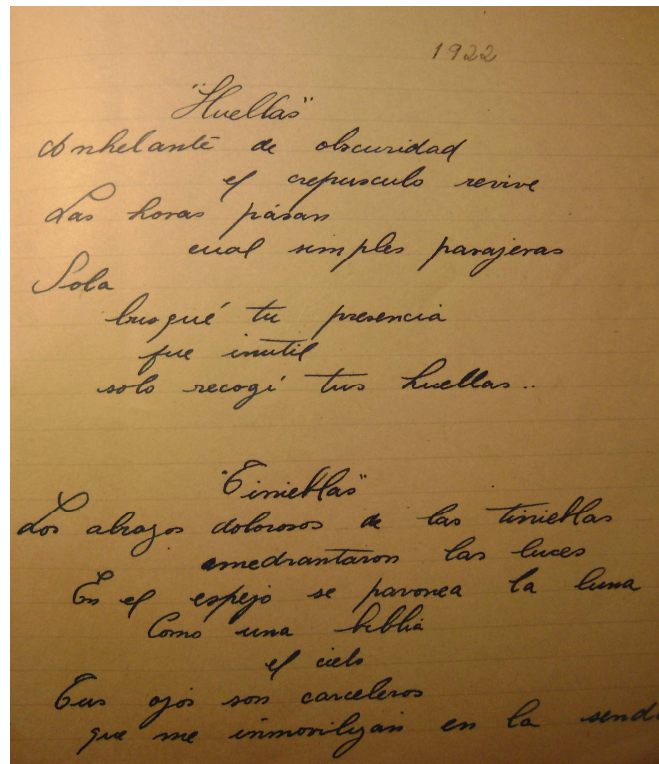 1922
"Huellas"
Anhelante de obscuridad
el crepusculo revive
Las horas pasan
cual simples pasajeras
Sola
busqué tu presencia
fue inutil
solo recogí tus huellas..
"Tinieblas"
Los abrazos dolorosos de las tinieblas
amedrantaron las luces
En el espejo se pavonea la luna
Como una biblia
el cielo
Tus ojos son carceleros
que me inmovilizan en la send